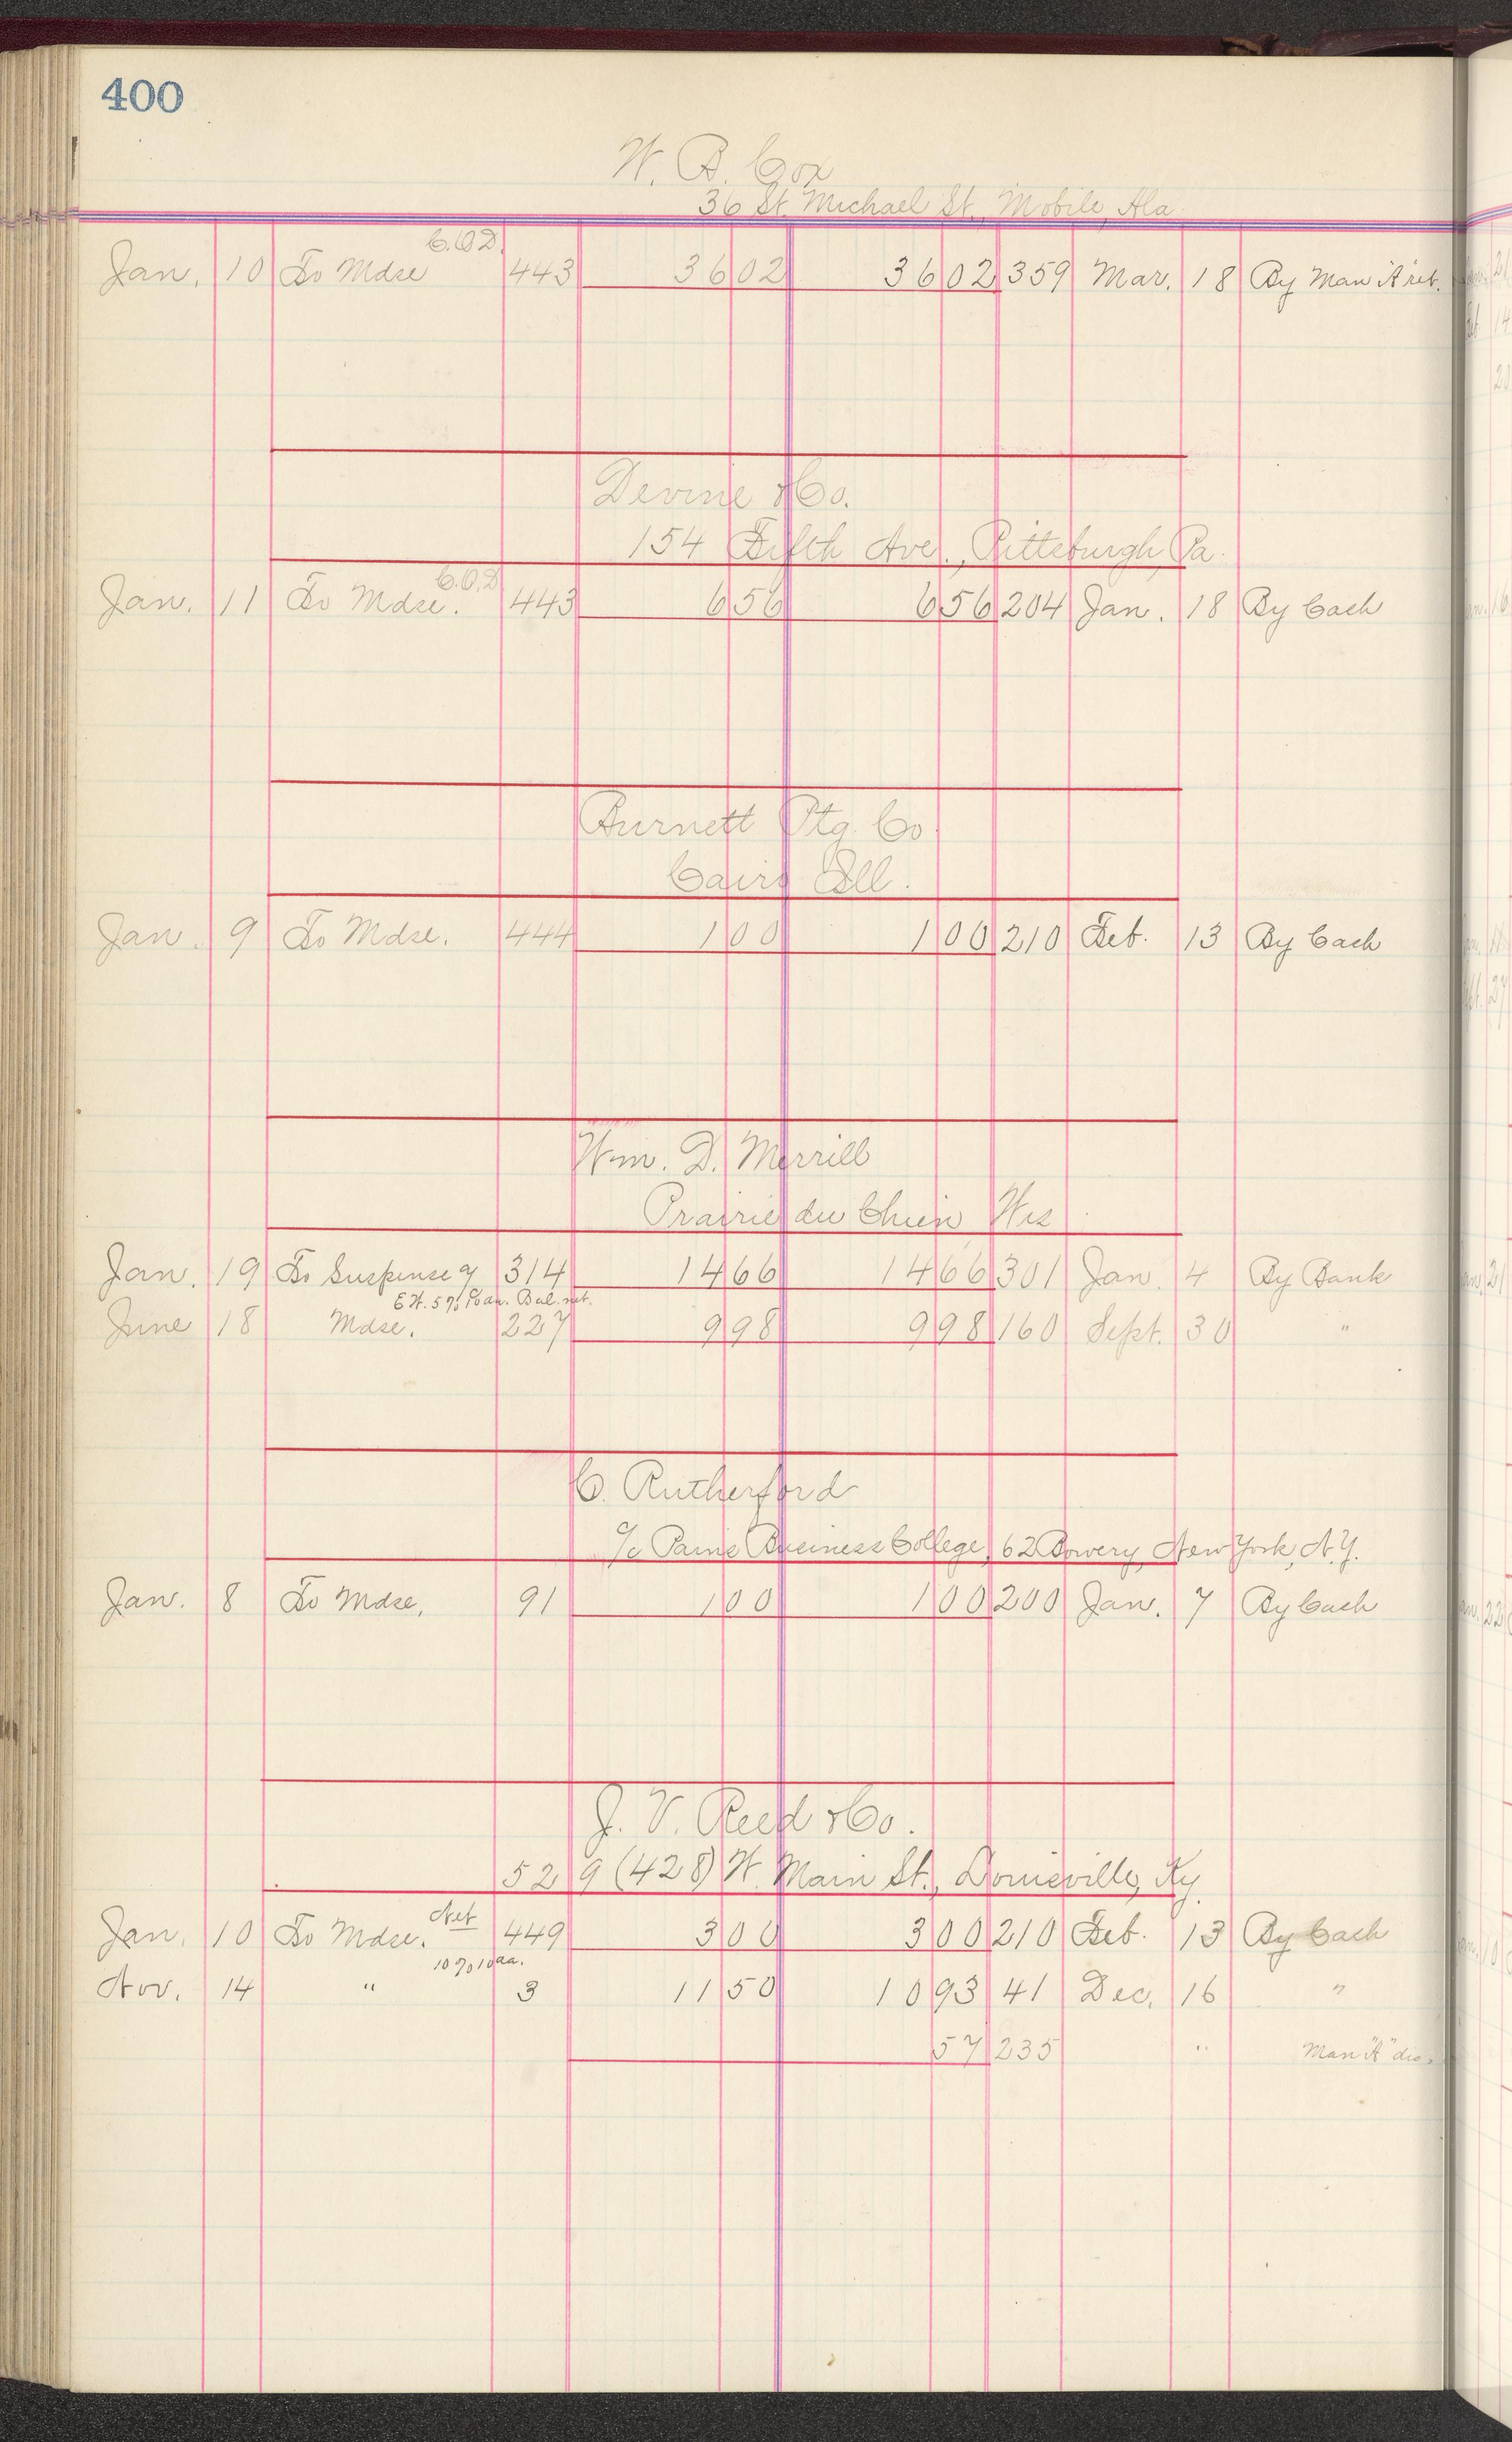 400
W. B. Cox
36 St. Michael St., Mobile, Ala
C.O.D.
Jan. 10 To Mdse 443 36 02 36 02 359 Mar. 18 By Man "A" ret.
Devine & Co.
154 Fifth Ave., Pittsburgh, Pa.
C.O.D
Jan. 11 To Mdse. 443 6 56 6 56 204 Jan. 18 By Cash
Burnett Ptg. Co.
Cairo Ill.
Jan. 9 To Mdse. 444 1 00 1 00 210 Feb. 13 By Cash
Wm. D. Merrill
Prairie du Chien Wis
Jan. 19 To Suspense 314 14 66 14 66 301 Jan. 4 By Bank
5% Bal. net.
June 18 Mdse. 227 9 98 9 98 160 Sept. 30 "
C. Rutherford
c/o Pains Business College, 62 Bowery, New York, N.Y.
Jan. 8 To Mdse, 91 1 00 1 00 200 Jan. 7 By Cash
J. V. Reed & Co.
529 (428) W. Main St., Louisville, Ky.
Net
Jan. 10 To Mdse. 449 3 00 3 00 210 Feb. 13 By Cash
10% 10 aa.
Nov. 14 " 3 11 50 10 93 41 Dec. 16 "
57 235 " Man "A" dis.